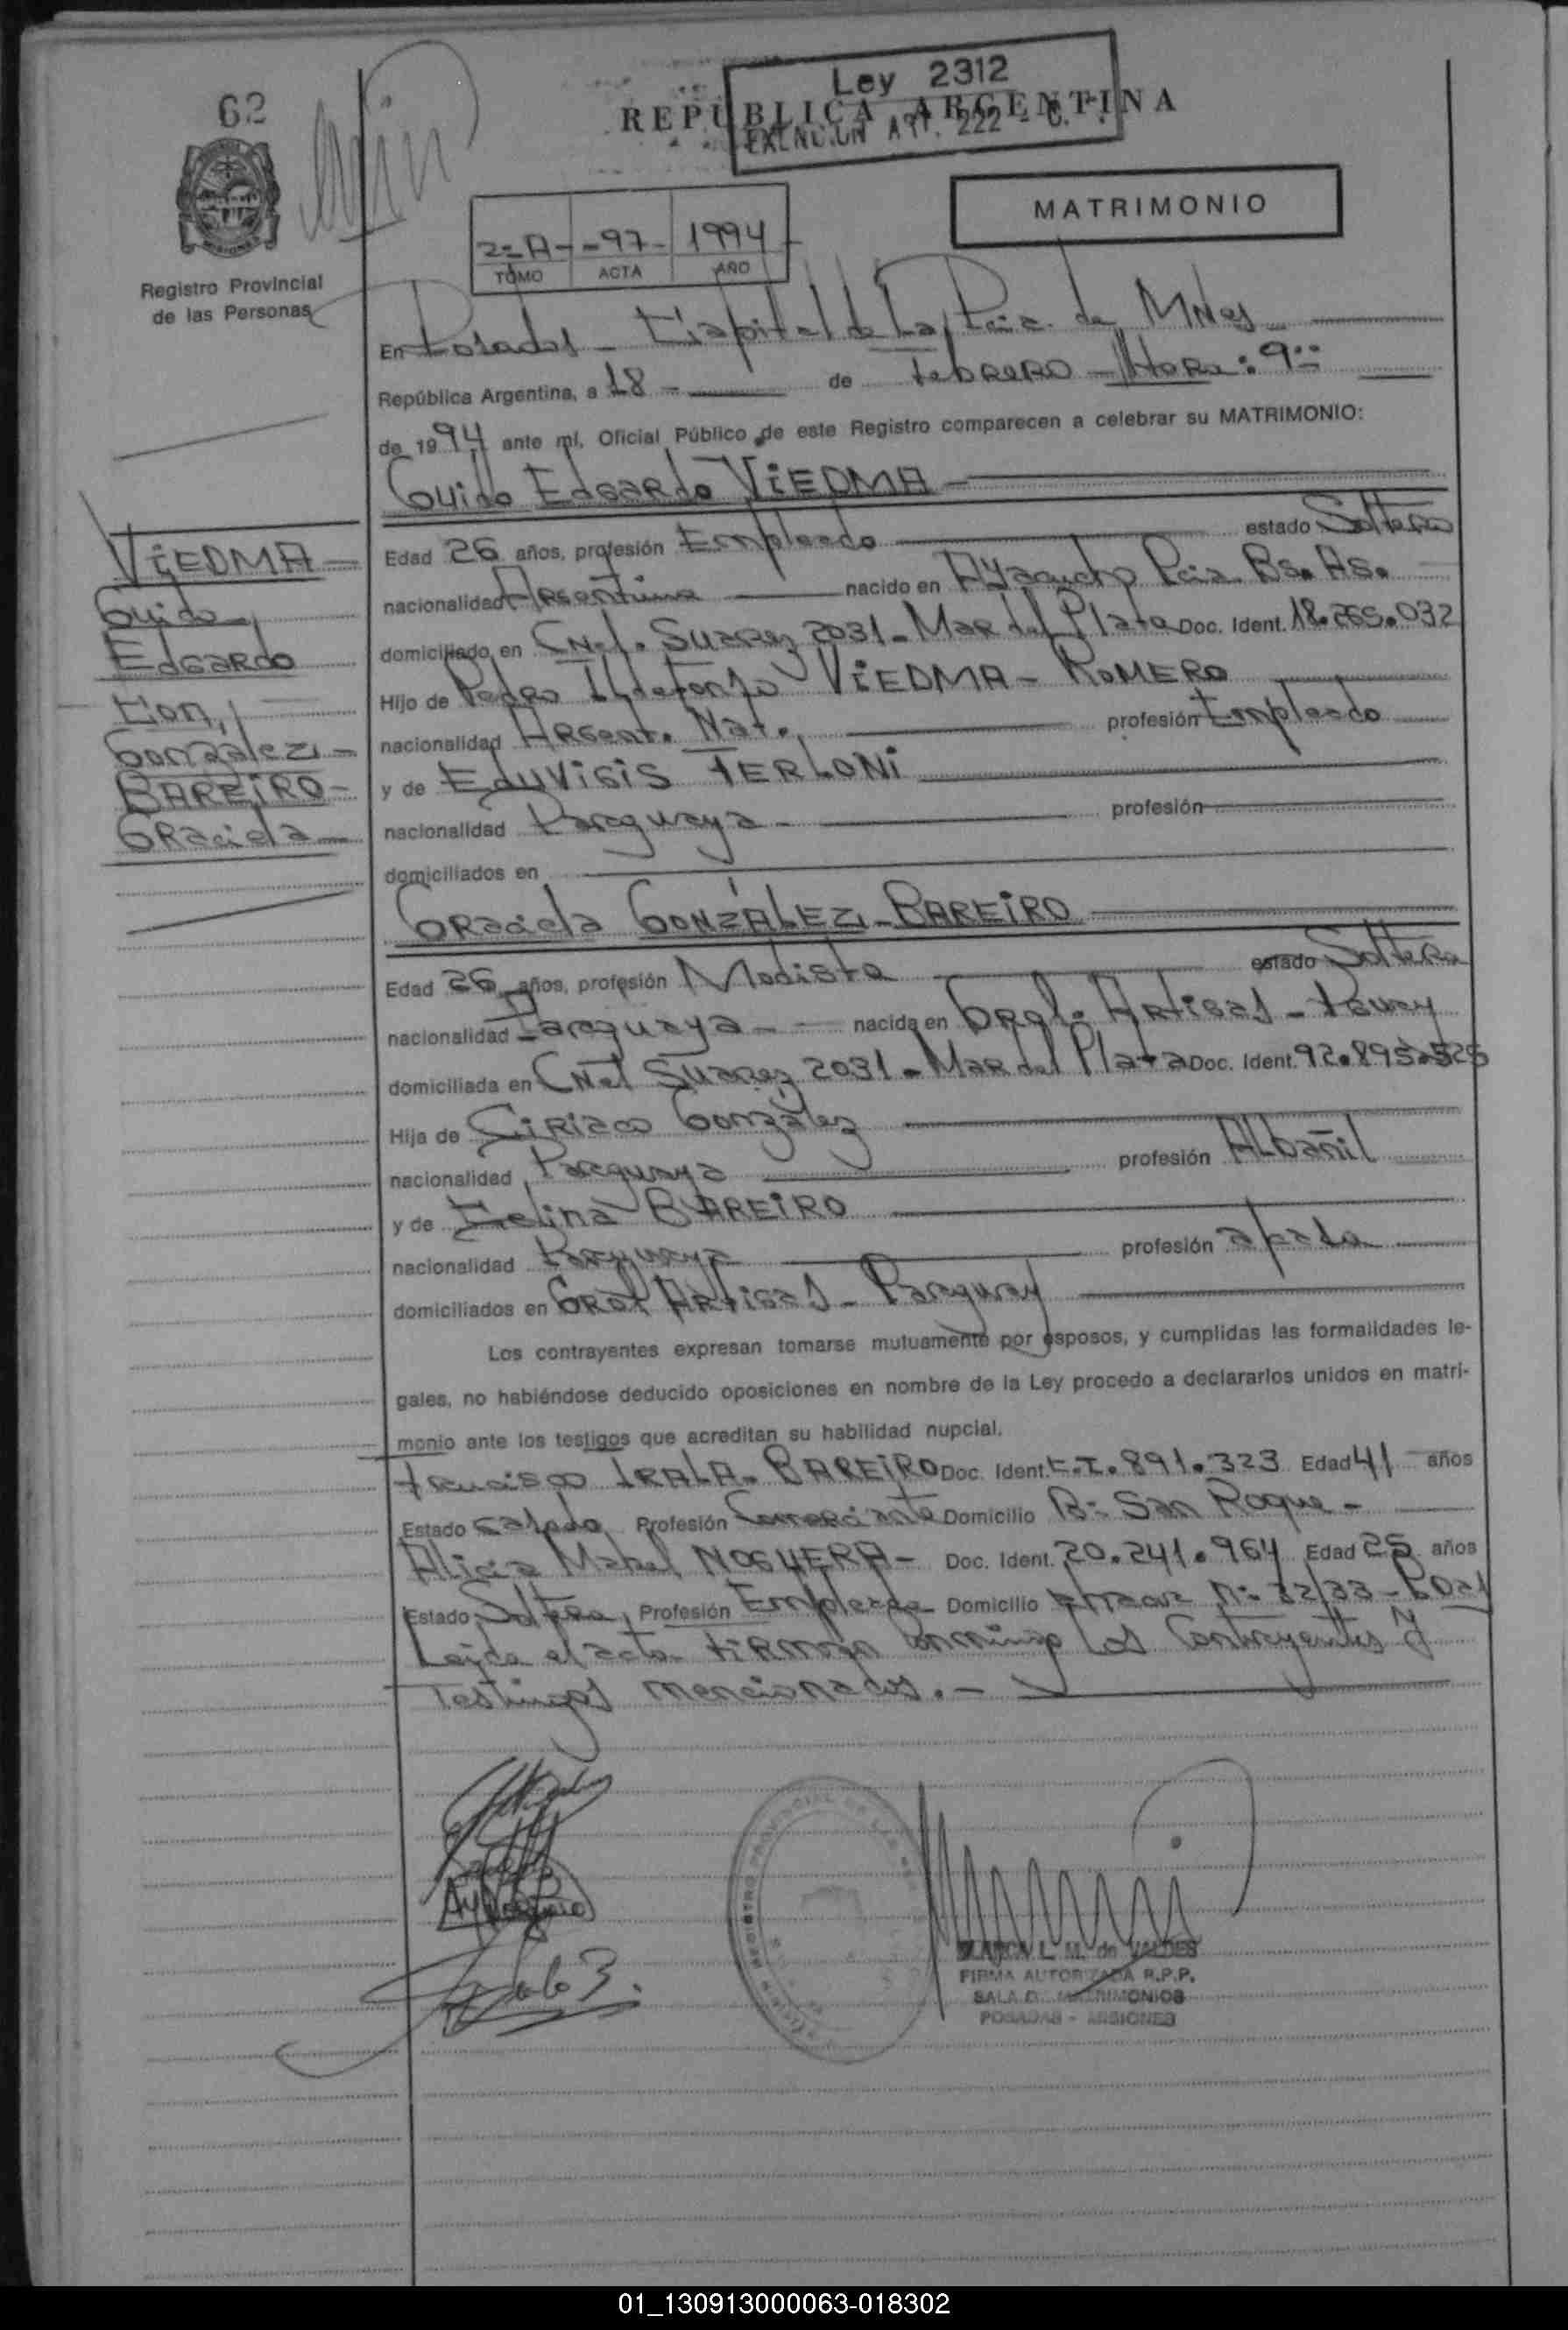 62
Ley 2312
REPUBLICA ARGENTINA
EXENCION ART. 222 - C.
MATRIMONIO
2=A- -97- 1994
TOMO ACTA AÑO
Registro Provincial
de las Personas
En Posadas - Capital de La Pcia. de Mnes
República Argentina, a 18 - de Febrero - Hora: 9
de 1994 ante mí, Oficial Público de este Registro comparecen a celebrar su MATRIMONIO:
Guido Edgardo VIEDMA -
Edad 26 años, profesión Empleado estado Soltero
nacionalidad Argentina nacido en Ayacucho Pcia. Bs. As.
domiciliado en Cnel. Suarez 2031 - Mar del Plata Doc. Ident. 18.265.032
Hijo de Pedro Ildefonso VIEDMA - ROMERO
nacionalidad Argent. Nat. profesión Empleado
y de Eduvigis FERLONI
nacionalidad Paraguaya - profesión
domiciliados en
Graciela GONZÁLEZ - BAREIRO
Edad 26 años, profesión Modista estado Soltera
nacionalidad Paraguaya - nacida en Gral. Artigas -
domiciliada en Cnel Suarez 2031 - Mar del Plata Doc. Ident. 92.895.525
Hija de Ciriaco González
nacionalidad Paraguaya profesión Albañil
y de BAREIRO
nacionalidad Paraguaya profesión
domiciliados en Gral Artigas - Paraguay
Los contrayentes expresan tomarse mutuamente por esposos, y cumplidas las formalidades le-
gales, no habiéndose deducido oposiciones en nombre de la Ley procedo a declararlos unidos en matri-
monio ante los testigos que acreditan su habilidad nupcial.
Francisco IRALA - BAREIRO Doc. Ident. C.I. 891.323 Edad 41 años
Estado casado Profesión Comerciante Domicilio B= San Roque -
Alicia Mabel NOGUERA - Doc. Ident. 20.241.964 Edad 25 años
Estado Soltera, Profesión Empleada Domicilio N= 32/33 -
Leída el acta firman conmigo los Contrayentes y
Testigos mencionados. -
VIEDMA -
Guido
Edgardo
Con,
Gonzalez -
BAREIRO -
Graciela
BLANCA L. M. de VALDES
FIRMA AUTORIZADA R.P.P.
SALA D. MATRIMONIOS
POSADAS - MISIONES
01_130913000063-018302